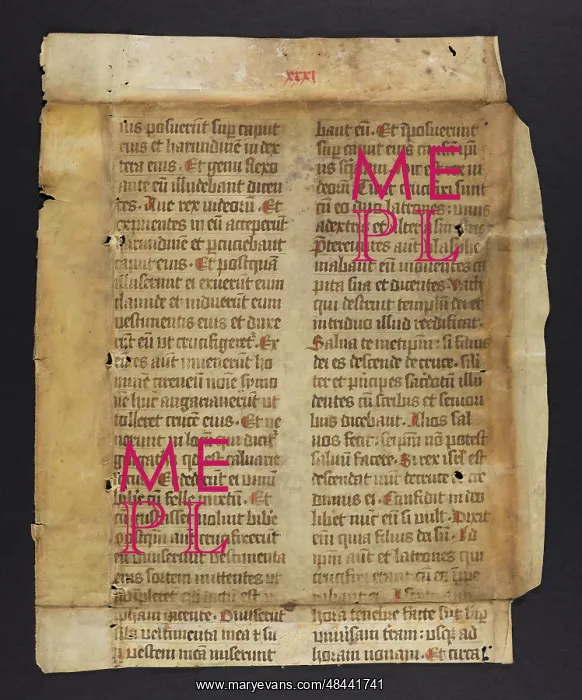 xxxi
nis posuerunt sup caput
eius et harundinē in dex
tera eius. Et genu flexo
ante eū illudebant dicen
tes. Aue rex iudeorū. Et
expuentes in eū acceperūt
harundinē et pcuciebant
caput eius. Et postquā
illuserunt ei exuerūt eum
clamide et induerūt eum
vestimentis eius et duxe
rūt eū ut crucifigeret. Ex
eūtes aūt inuenerūt ho
minē cireneū noīe symo
nē hūc angariauerūt ut
tolleret crucē eius. Et ue
nerunt in locū dicit
caluarie
Et dederūt ei vinū
bibe cū felle mixtū. Et
noluit bibe
crucifixerūt
eū diuiserunt vestimenta
eius sortem mittentes ut
adimpleret
ptam dicente. Diuiserūt
sibi vestimenta mea et su
p vestem meā miserunt
bant eū. Et īposuerunt
sup caput eius
us
deorū crucifixi sunt
cū eo duo latrones. unus
a dextris et alter
Ptereuntes aūt blasphe
mabant eū mouentes ca
pita sua et dicentes. Vach
qui destruit templū dei et
in triduo illud reedificat.
Salua temetipm. si filius
dei es descende de cruce. Sili
ter et pīncipes sacdotū illu
dentes cū scribis et seniori
bus dicebant. Alios sal
uos fecit. seipm nō potest
saluū facere. Si rex isrl est
descendat nūc de cruce et cre
dimus ei. Confidit in deo
libet nūc eū si vult. Dixit
eni quia filius dei sū. Id
ipm aūt et latrones qui
crucifixi erant cū eo īppe
rabant ei.
hora tenebre facte sūt sup
uniuersam terram. usq ad
horam nonam. Et circa
ME
PL
ME
PL
www.maryevans.com/48441741